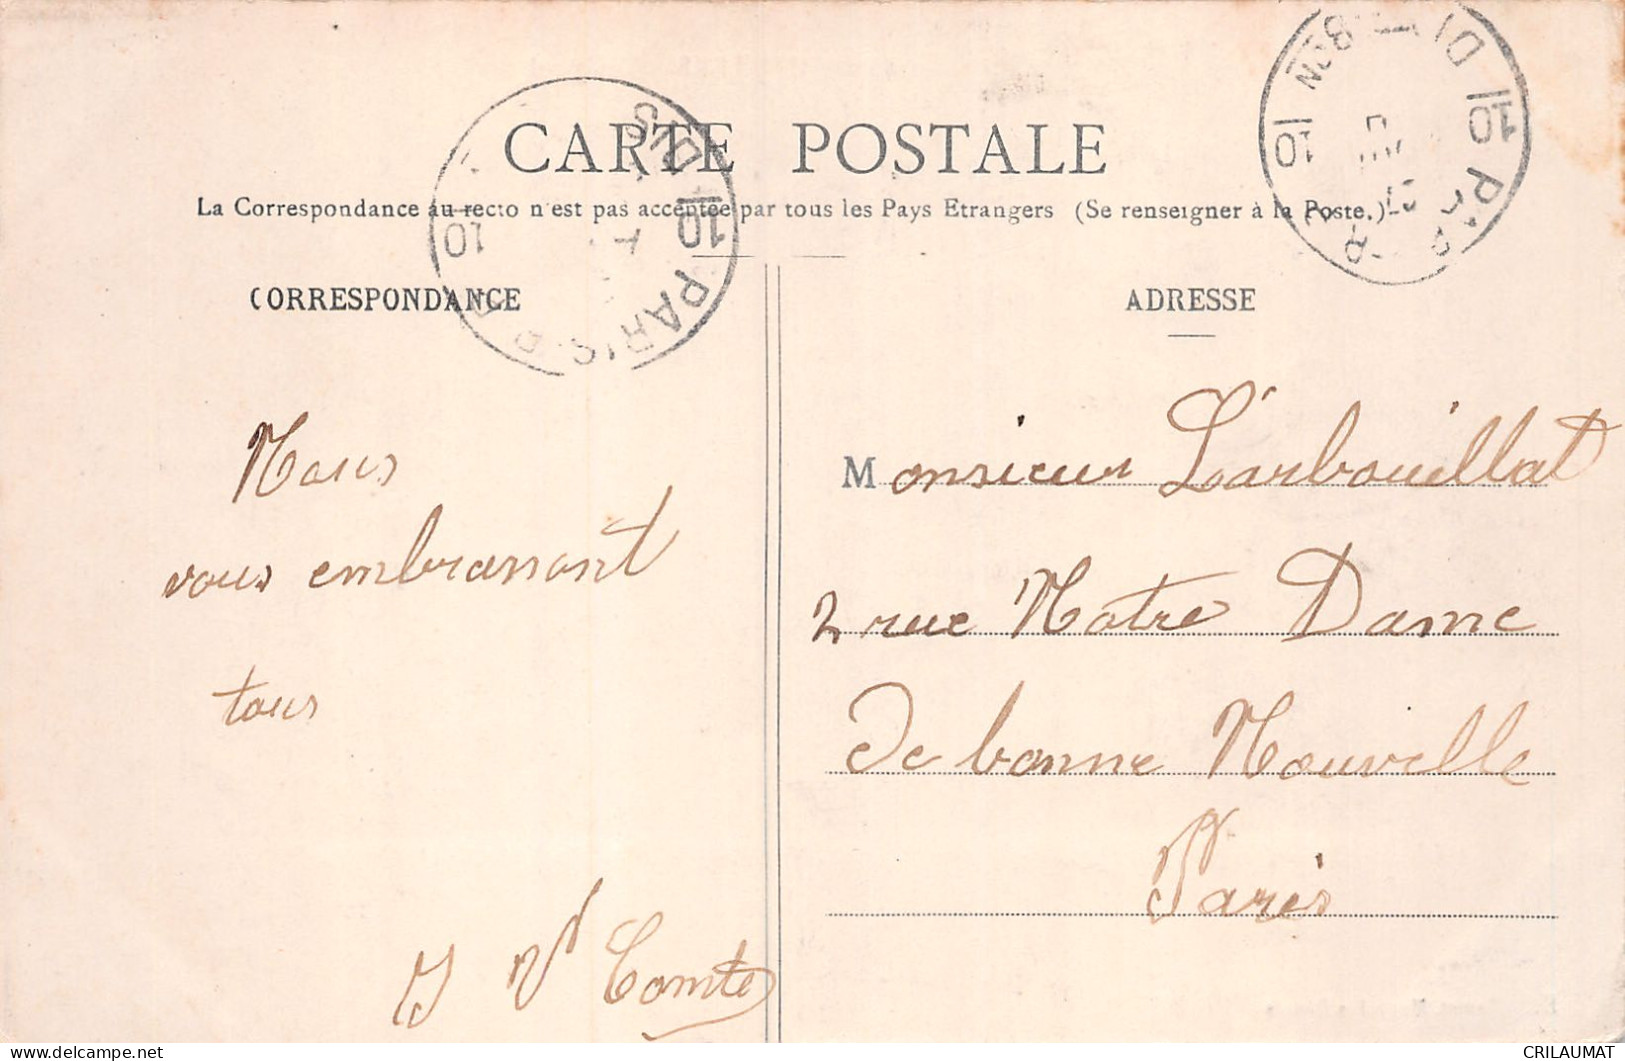 CARTE POSTALE
La Correspondance au recto n'est pas acceptée par tous les Pays Etrangers (Se renseigner à la Poste.)
CORRESPONDANCE
Nous
vous embrassont
tous
Comte
ADRESSE
Monsieur Larbouillat
2 rue Notre Dame
de bonne Nouvelle
Paris
10 PARIS 10
10 10
CRILAUMAT